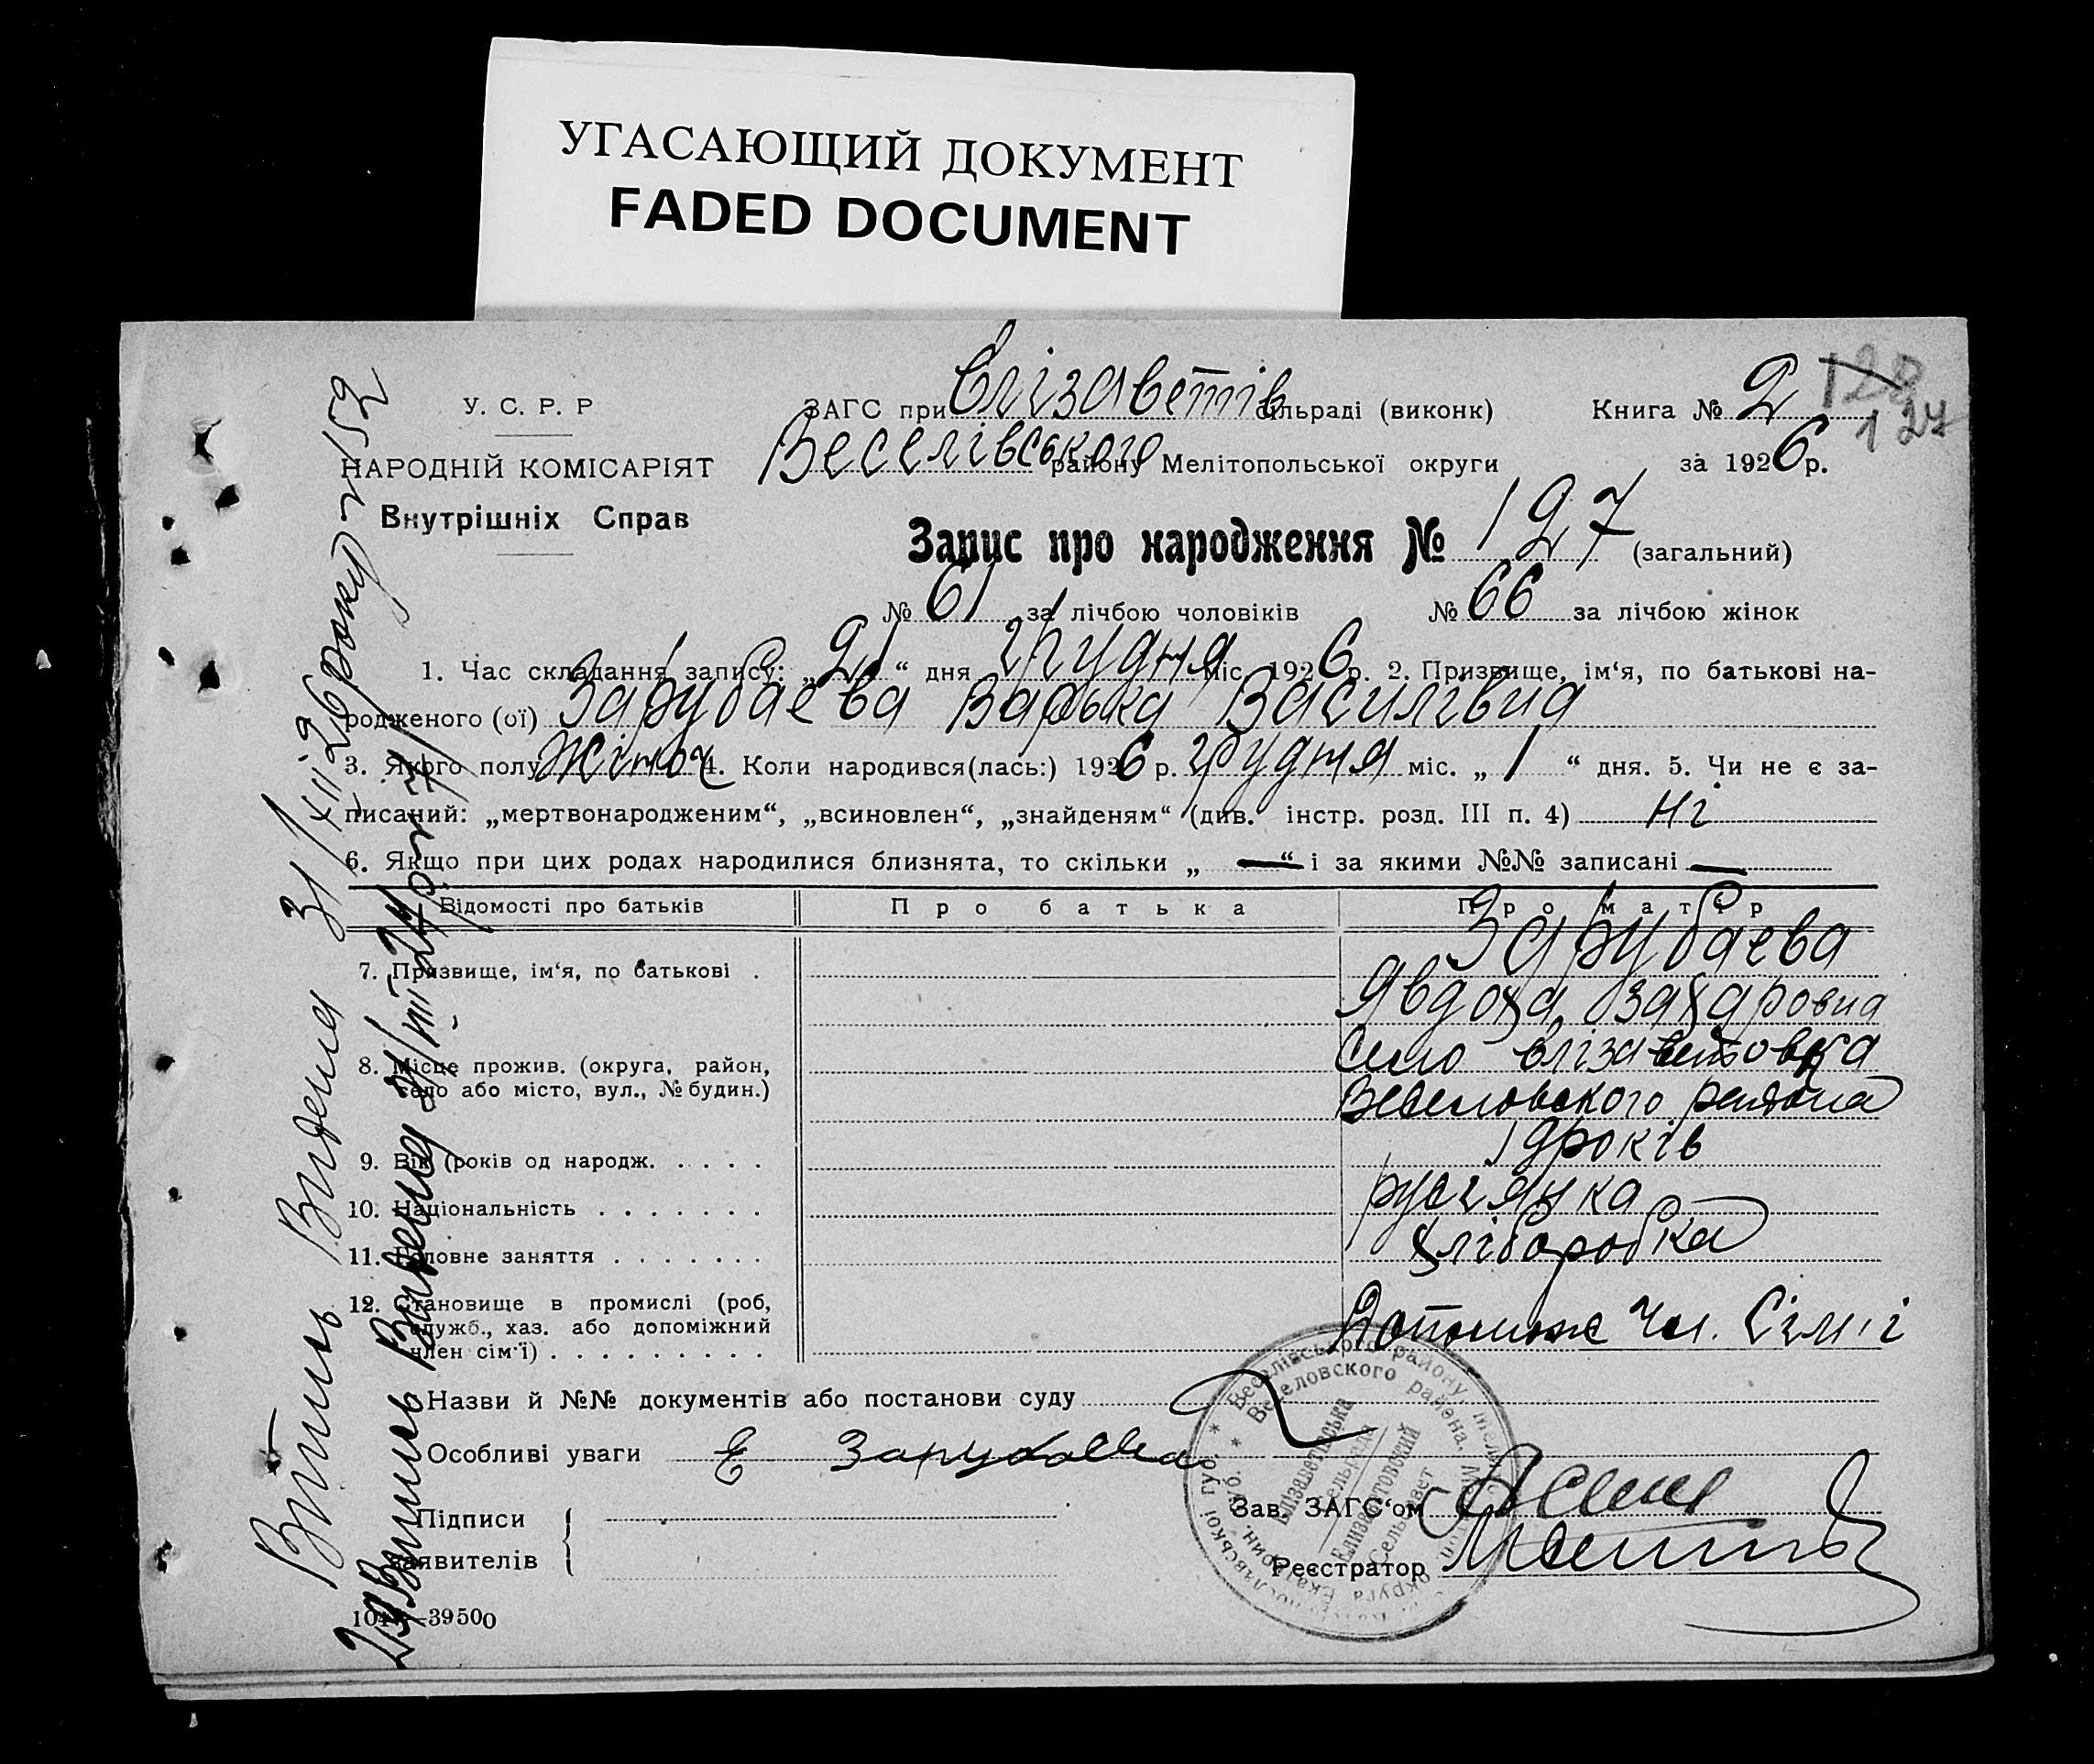 УГАСАЮЩИЙ ДОКУМЕНТ
FADED DOCUMENT
У. С. Р. Р
НАРОДНІЙ КОМІСАРІЯТ
Внутрішніх Справ
ЗАГС при Єлізаветів сільраді (виконк)
Веселівського району Мелітопольської округи
Книга № 2
128
127
за 1926 р.
Запис про народження № 127 (загальний)
№ 61 за лічбою чоловіків № 66 за лічбою жінок
1. Час складання запису: „21“ дня грудня міс. 1926 р. 2. Призвище, ім‘я, по батькові на-
родженого (ої) Зарубаева Варька Василівна
3. Якого полу жіноч 4. Коли народився(лась:) 1926 р. грудня міс. „ 1 “ дня. 5. Чи не є за-
писаний: „мертвонародженим“, „всиновлен“, „знайденям“ (див. інстр. розд. III п. 4) Ні
6. Якщо при цих родах народилися близнята, то скільки „ — “ і за якими №№ записані —
Відомості про батьків Про батька Про матір
7. Призвище, ім‘я, по батькові . Зарубаева
Явдоха Захаровна
8. Місце прожив. (округа, район, село або місто, вул., № будин.) Село Єлізаветовка
Веселовского района
9. Вік (років од народж. . . . . 19 років
10. Національність . . . . . . . русчянка
11. Головне заняття . . . . . . . хліборобка
12. Становище в промислі (роб,
служб., хаз. або допоміжний
член сім‘ї) . . . . . . . . . Допоміж чл. Сімі
Назви й №№ документів або постанови суду
Особливі уваги Є Зарубаева
Підписи
заявителів
Зав. ЗАГС‘ом
Реєстратор
Веселівського району,
Веселовского района,
Єлізаветівська
Сельрада
Елизаветовский
Сельсовет
39500
Витяг Видена 31/XII 26 року № 152
Витяг Видена